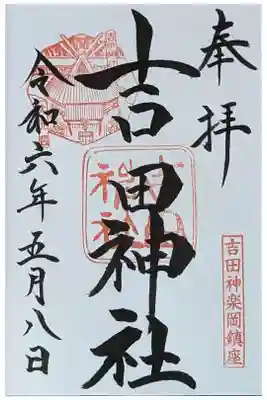 奉拝
吉田神社
令和六年五月八日
吉田神楽岡鎮座
吉田
神社